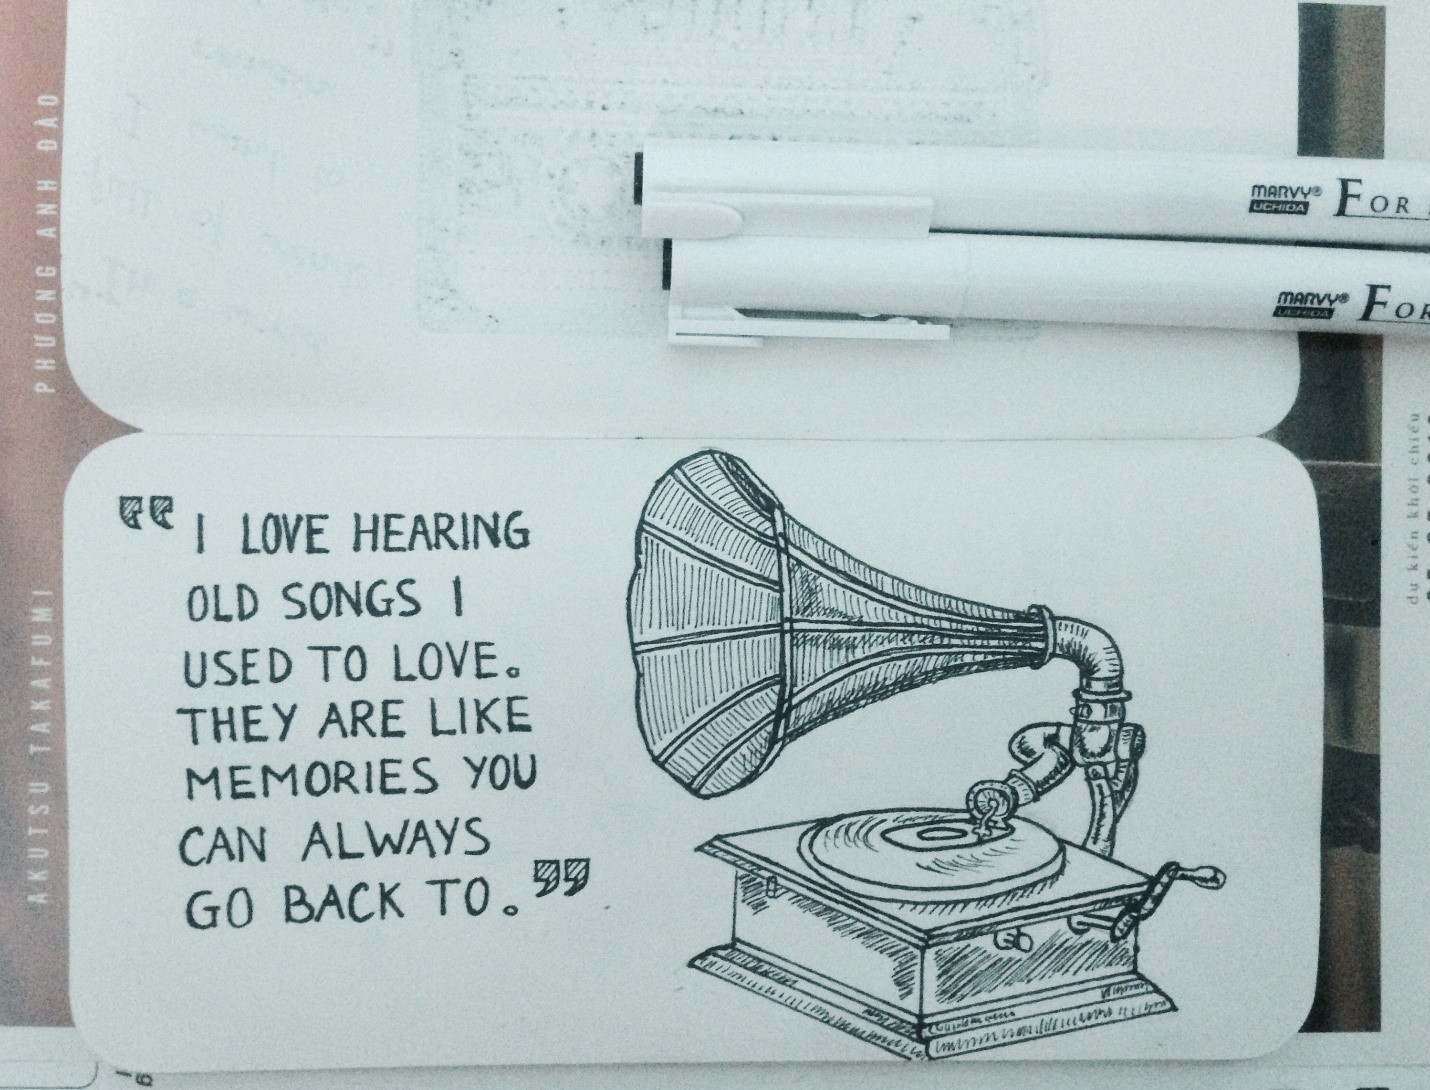 PHƯƠNG ANH ĐÀO
AKUTSU TAKAFUMI
MARVY® FOR
UCHIDA
MARVY® FOR
UCHIDA
dự kiến khởi chiếu
“ I LOVE HEARING
OLD SONGS I
USED TO LOVE.
THEY ARE LIKE
MEMORIES YOU
CAN ALWAYS
GO BACK TO. ”